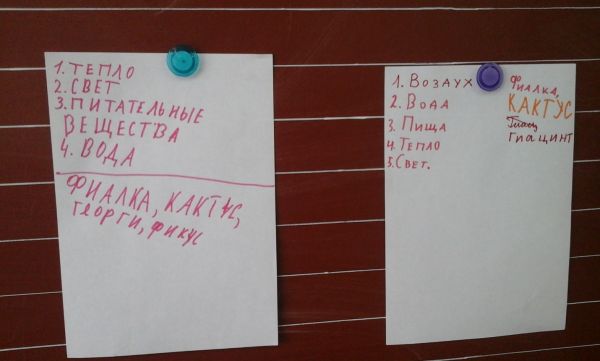 1. ТЕПЛО
2. СВЕТ
3. ПИТАТЕЛЬНЫЕ
ВЕЩЕСТВА
4. ВОДА
ФИАЛКА, КАКТУС,
ГЕОРГИ, ФИКУС
1. ВОЗДУХ
2. ВОДА
3. ПИЩА
4. ТЕПЛО
5. СВЕТ.
ФИАЛКА,
КАКТУС
ГИАЦИНТ